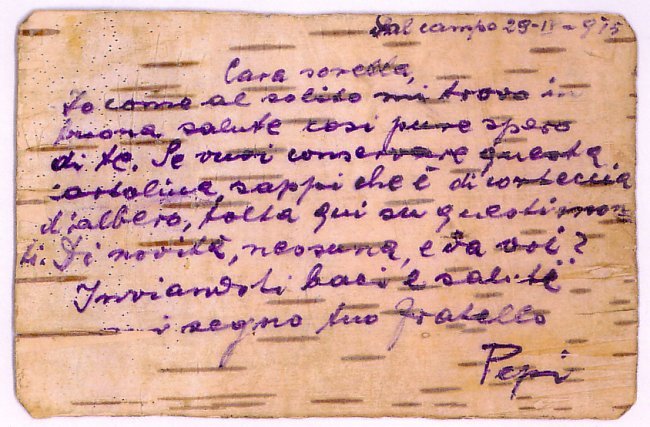 Dal campo 29-II-915
Cara sorella,
Io come al solito mi trovo in
buona salute così pure spero
di te. Se vuoi conservare questa
cartolina, sappi che è di corteccia
d'albero, tolta qui su questi mon-
ti. Di novità, nessuna, e da voi?
Inviandoti baci e saluti
mi segno tuo fratello
Pepi